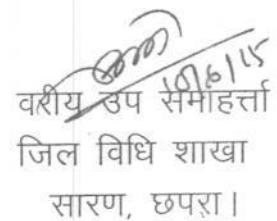 10/6/15
वरीय उप समाहर्त्ता
जिल विधि शाखा
सारण, छपरा।